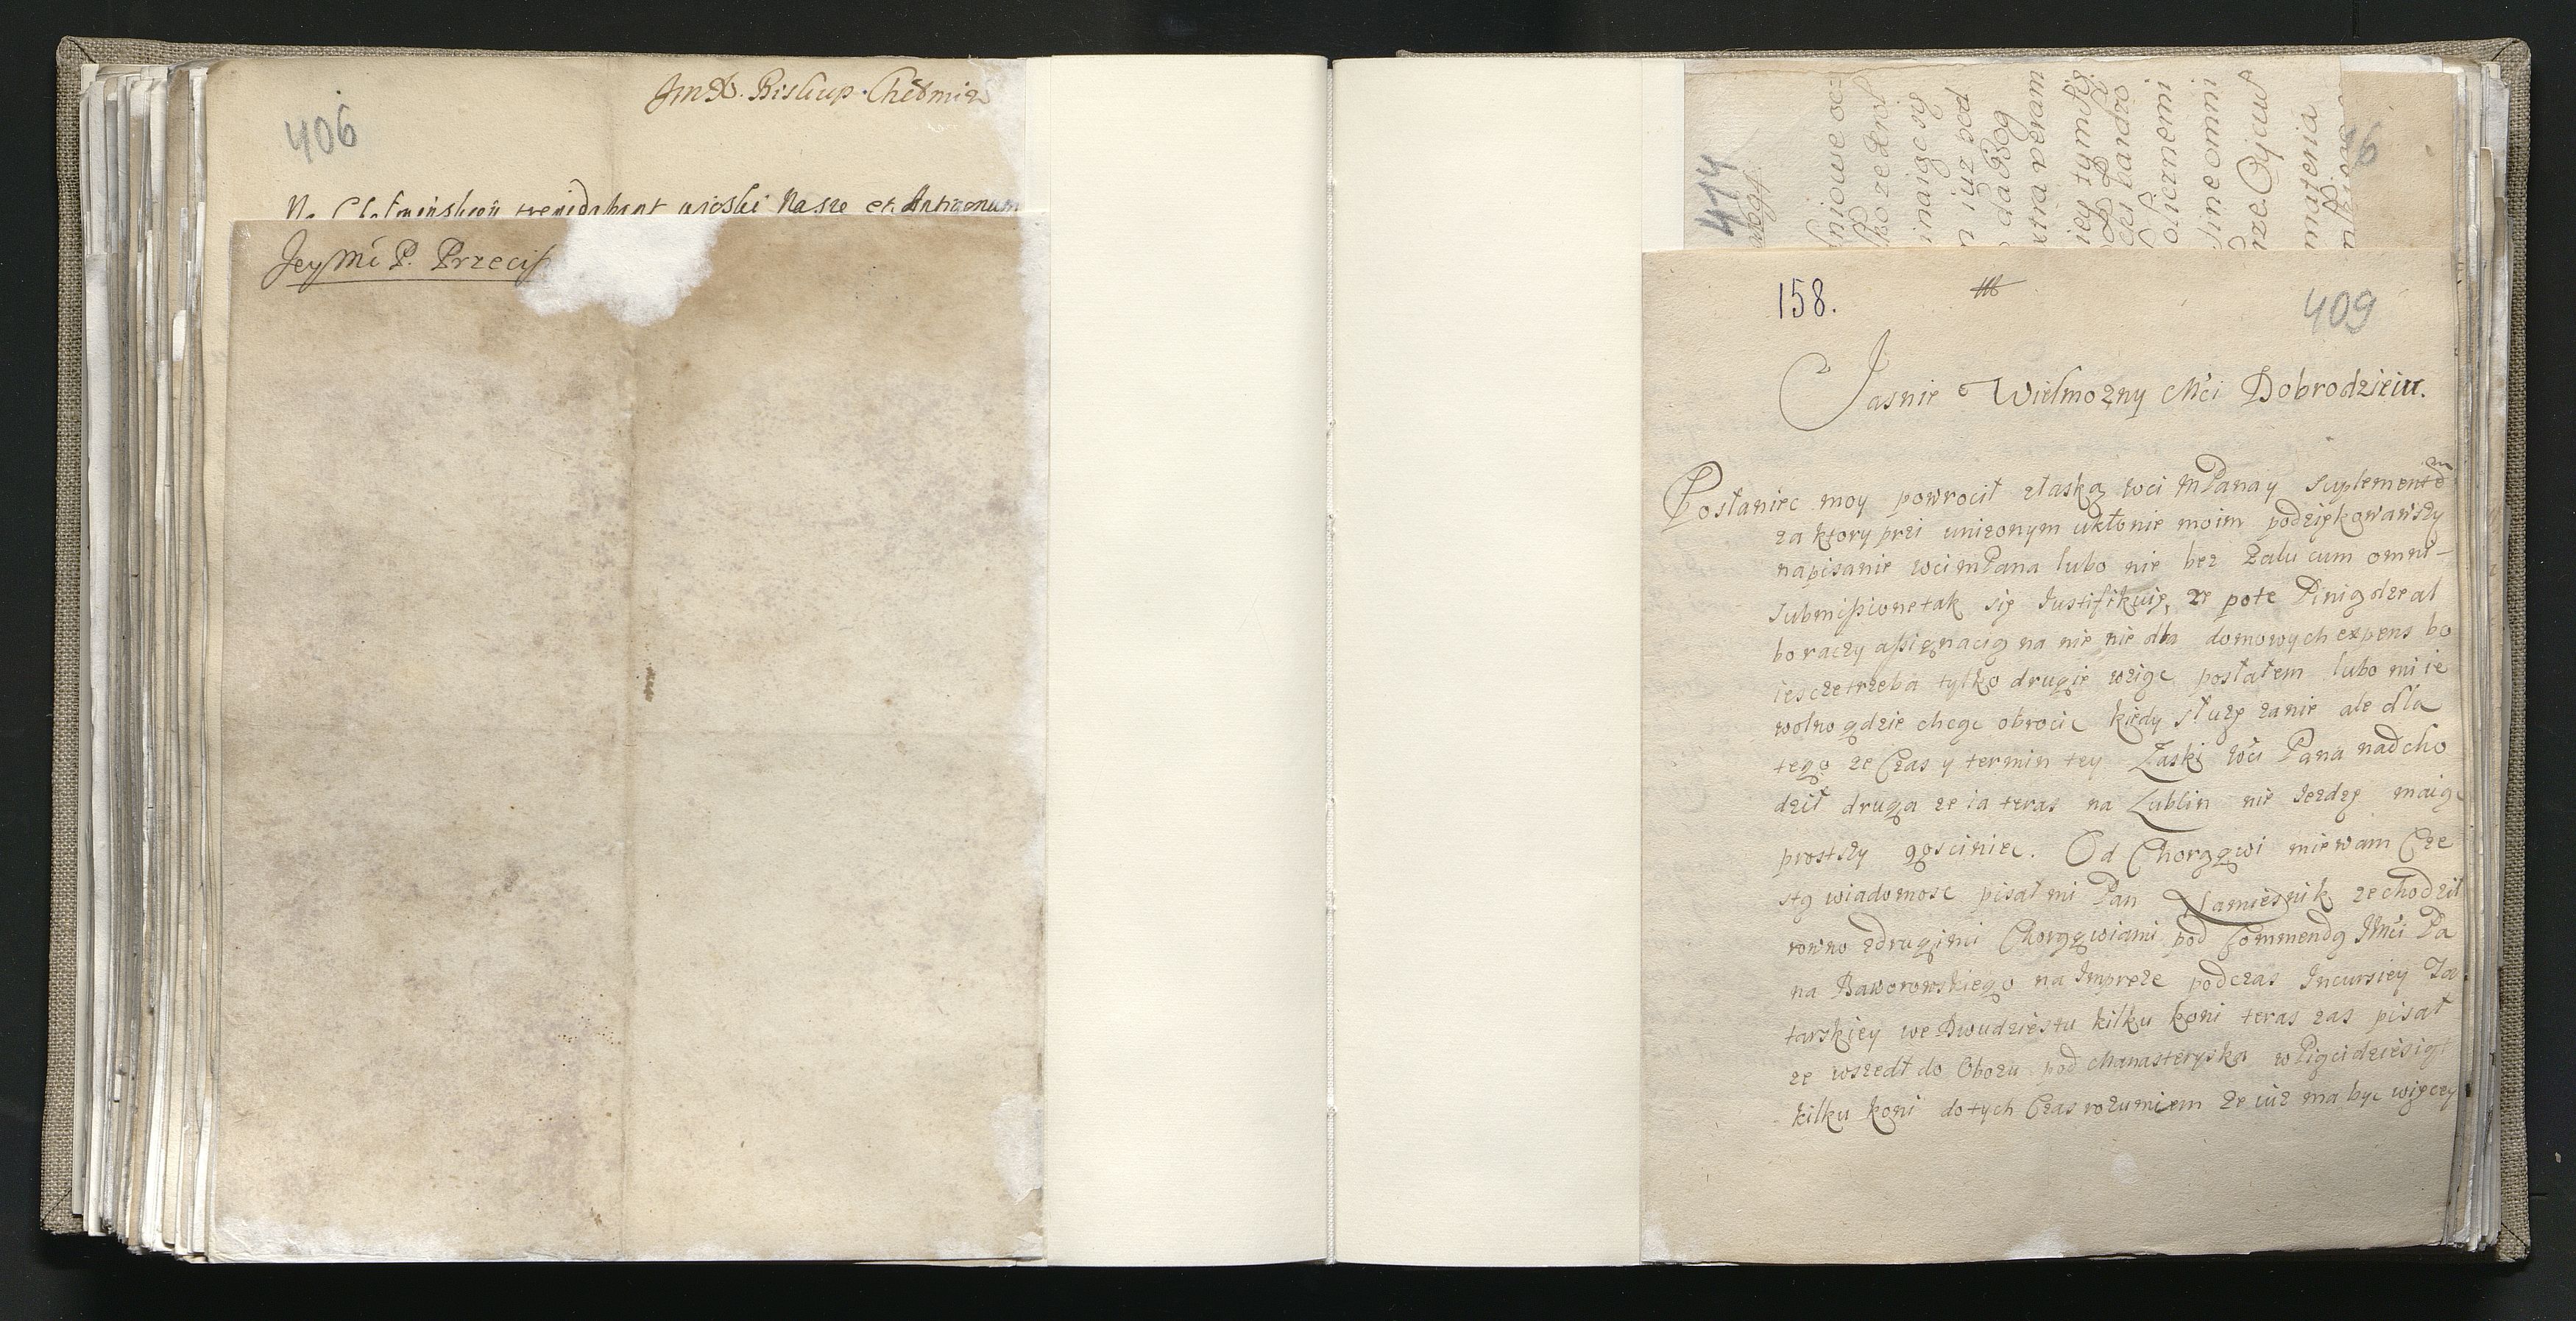 406
JmX. Biskup Chełmiń
Na Chełmińskiey trepidabant wioski Nasze et Antigonum
Jey Mć P. Przecis
474
158.
409
6
Jasnie Wielmozny Mći Dobrodzieiu.
Postaniec moy powrocił złaską wci MPana y suplement
za ktory przi unizonym ukłonie moim podziękowawszy
napisanie wci mPana lubo nie bez zalu cum omni-
submissione tak się Justifikuię, ze pote Pinigdze al
bo raczy assignacią na nie nie dla domowych expens bo
iescze trzeba tylko drugie wziąc posłałem lubo mi ie
wolno gdzie chcąc obrocic kiedy słuzę zanie ale dla
tego ze Czas y termin tey Łaski wći Pana nadcho
dził druga ze ia teras na Lublin nie Jezdzę maiąc
prostszy gosciniec. Od Chorągwi miewam Cze
stą wiadomosc pisał mi Pan Namiesnik ze chodził
rowno zdrugimi Chorągwiami pod Commendą Jmći Pa
na Baworowskiego na Impreze podczas Incursiey Ta
tarskiey we Dwudziestu kilku koni teras zas pisał
ze wszedł do Obozu pod chanasteryska wPięcidziesiąt
kilku koni do tych Czas rozumiem ze iuz ma byc więcey